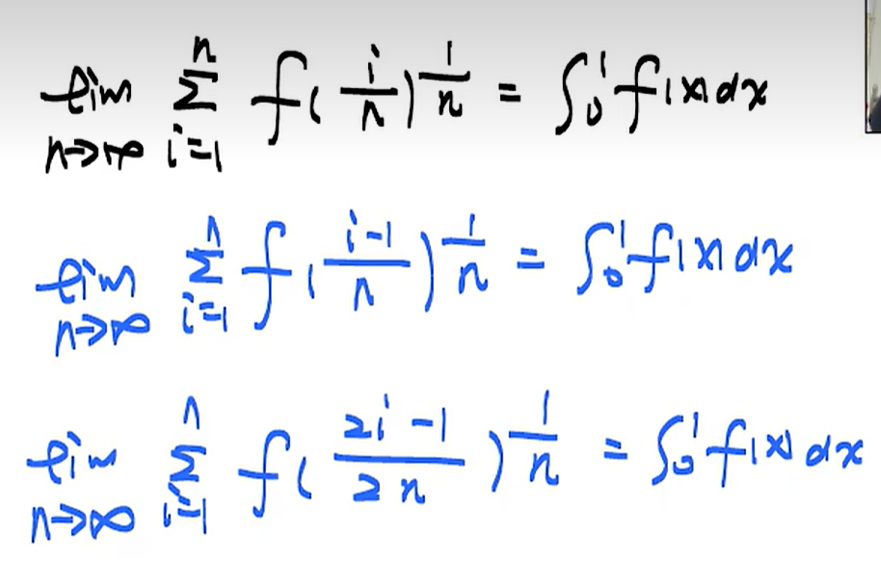 lim_{n→∞} ∑_{i=1}^{n} f(i/n) 1/n = ∫_0^1 f(x)dx
lim_{n→∞} ∑_{i=1}^{n} f((i-1)/n) 1/n = ∫_0^1 f(x)dx
lim_{n→∞} ∑_{i=1}^{n} f((2i-1)/(2n)) 1/n = ∫_0^1 f(x)dx